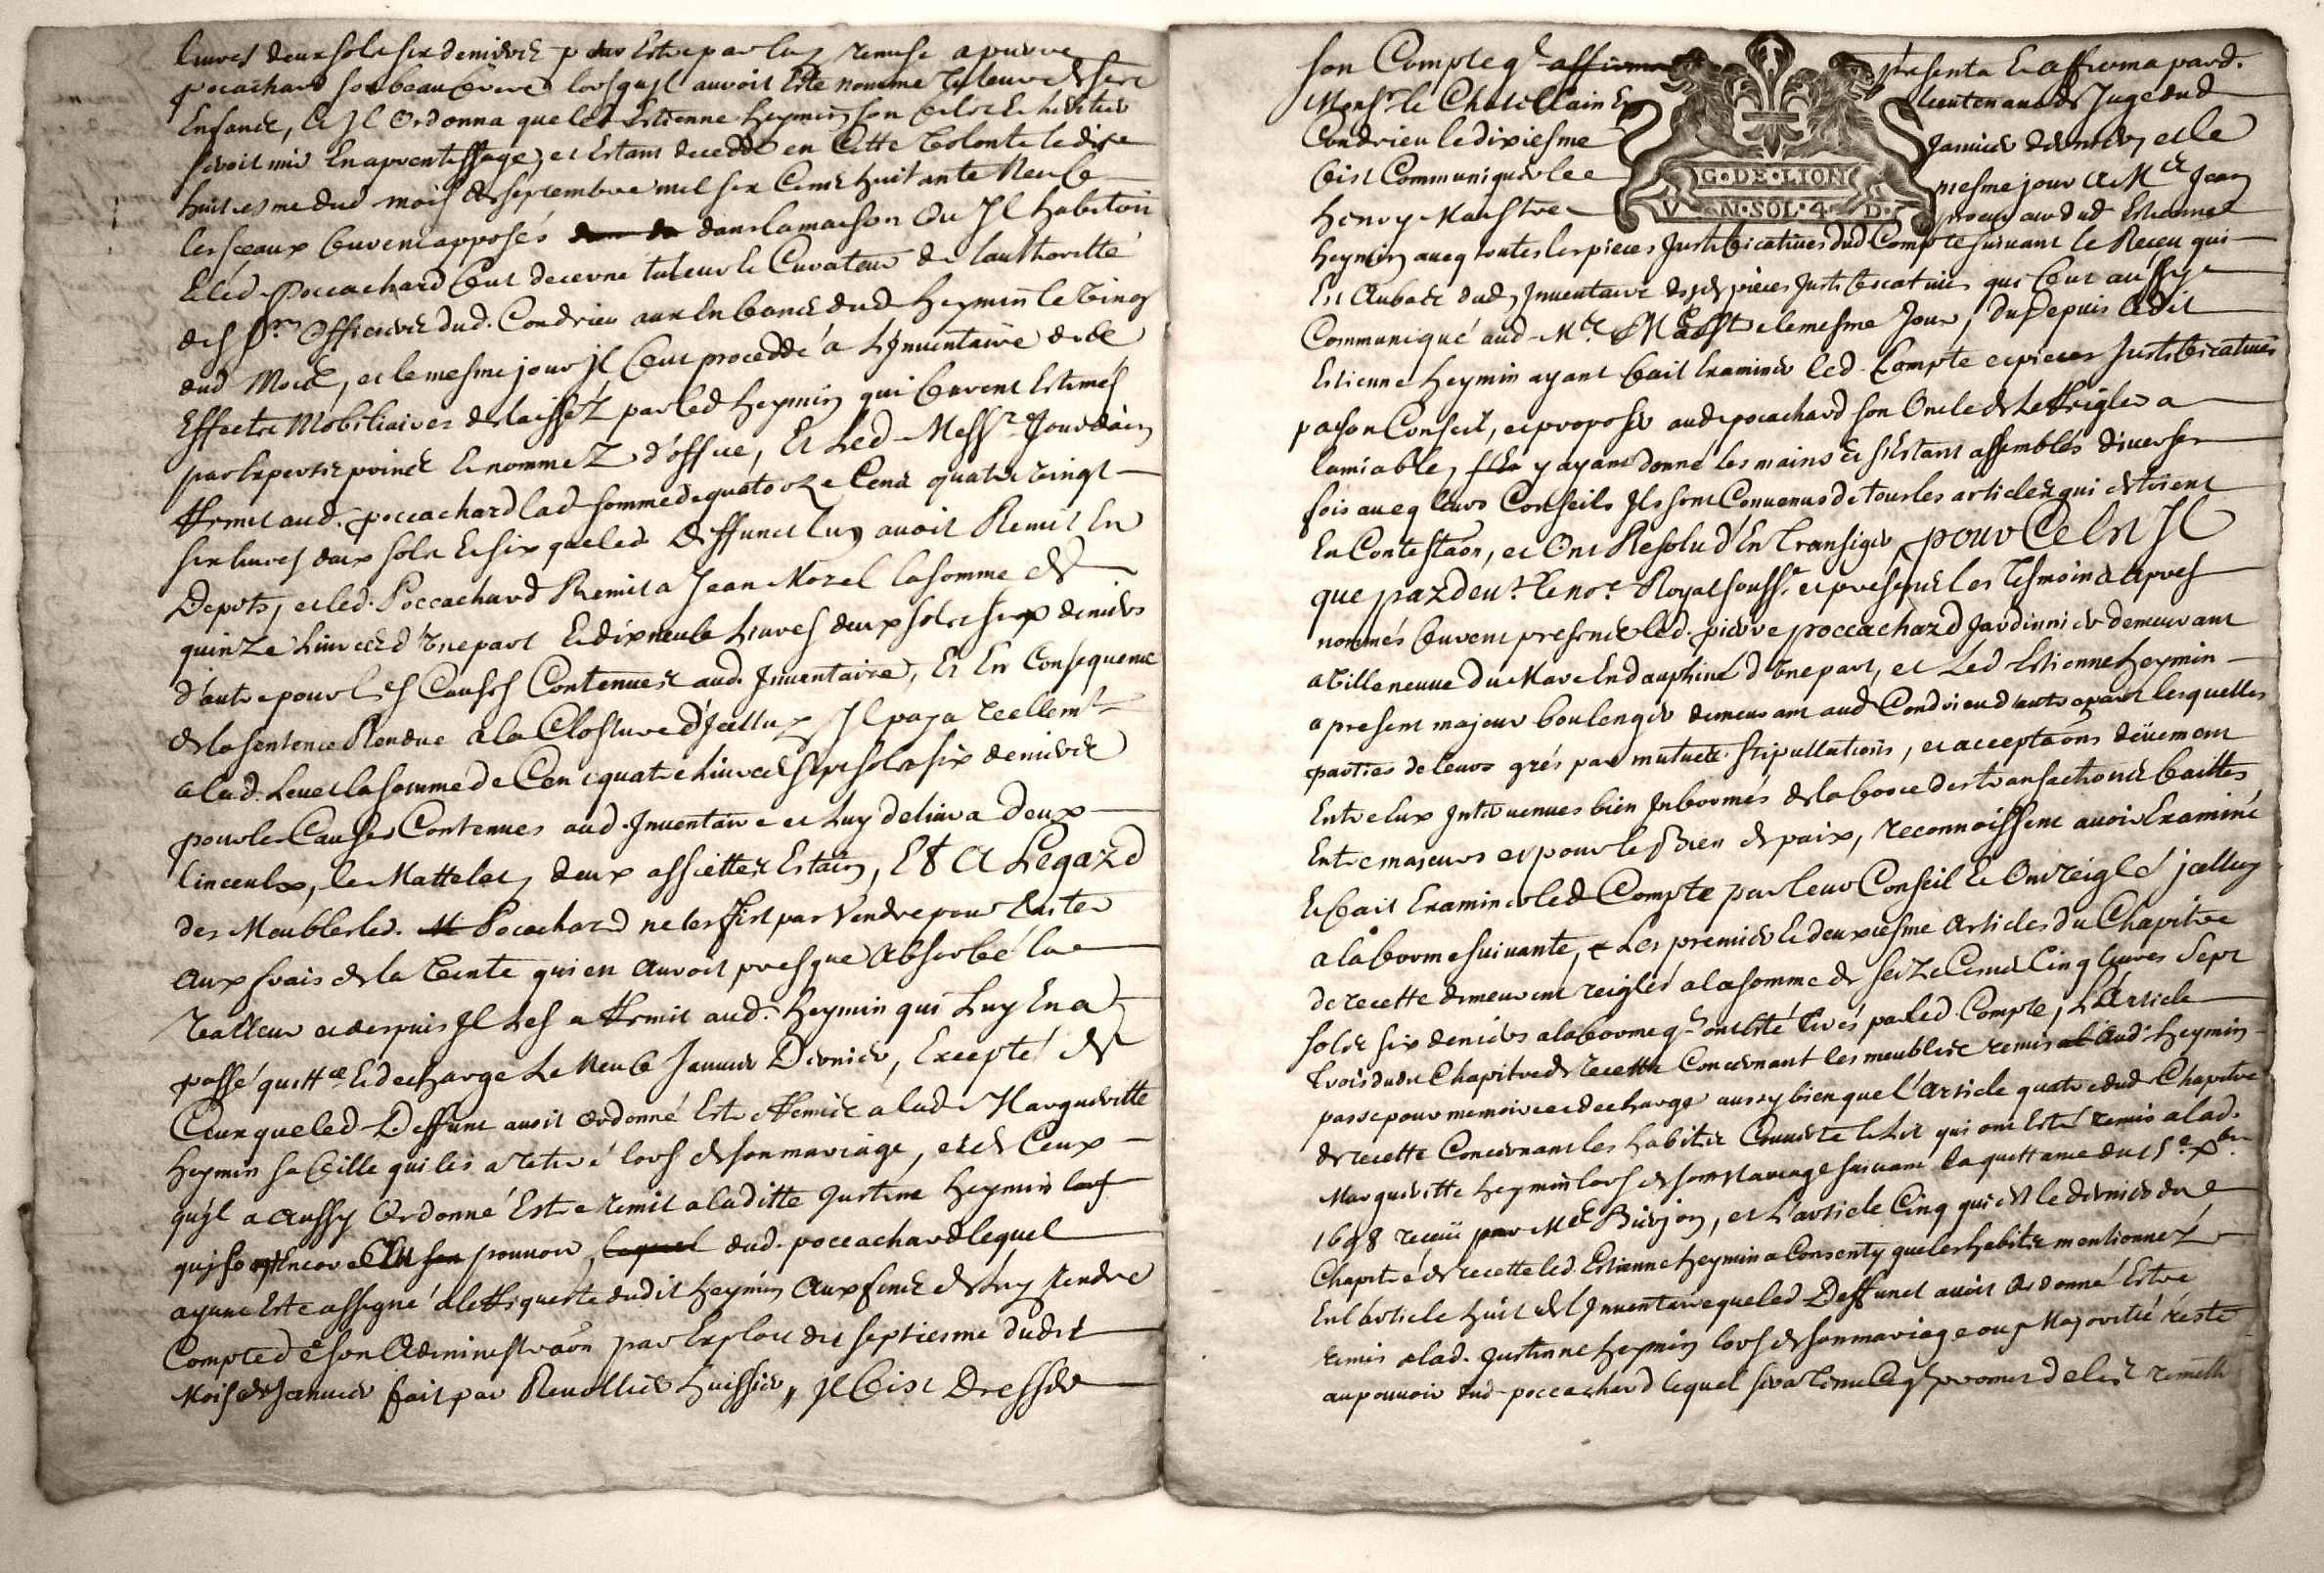 livres deux sols six deniers pour Estre par luy remise a pierre
pocachard son beau frere lors quil auroit Esté nommé tuteur de ses
Enfants, Et Jl Ordonna que led Estienne heymin son fils Et heritier
seroit mis En aprentissage, et Estant deceddé en Cette Volonté le dix
huitiesme dud mois de septembre mil six Cents huitante Neuf
les sceaux furent apposés dans la maison Ou Jl habitoit
Et led. Poccachard fut decerné tuteur Et Curateur de lauthoritté
des Srs Officiers dud. Condrieu aux Enfants dud heymin le Vingt
dud Mois, et le mesme jour Jl fut proceddé a LJnventaire des
Effects Mobiliaires delaissez par led heymin qui furent Estimés
par Experts prins Et nommez d'office, Et Led Messr Jourdain
Remit aud. poccachard lad somme de quatorze Cents quatre vingt
six livres deux sols Et six que led Deffunct luy avoit Remis En
Depots, et led. Poccachard Remit a Jean Morel la somme de
quinze Livres d'Vne part Et dix neuf Livres deux sols six deniers
d'autre pour les Causes Contenues aud. Jnventaire, Et En Consequence
de la sentence Rendue a la Closture d'Jcelluy Jl paya reellemt
a lad. la somme de Cent quatre Livres sept sols six deniers
pour les Causes Contenues aud. Jnventaire et Luy delivra deux
linceulx, le Mattelat, deux assiettes Estain, Et A Legard
des Meubles led. Pocachard ne les fist pas Vendre pour Eviter
aux frais de la Vente qui en auroit presque Absorbé la
Valleur et depuis Jl Les a Remis aud. heymin qui Luy En a
passé quittce Et decharge Le Neuf Janvier Dernier, Excepté de
Ceux que led Deffunt avoit ordonné Estre Remis a lad Margueritte
heymin sa fille qui les a retiré lors de son mariage, et de Ceux
qu'jl a aussy Ordonné Estre remis a laditte Justine heymin lors
qui sont Encore En son pouvoir, lequel dud. poccachard lequel
ayant Esté assigné a le Requeste dudit heymin Aux fins de luy Rendre
Compte de son Administraon par Exploit du septiesme dudit
Mois de Janvier fait par Revollier huissier, Jl fist Dresser
son Compte ql affirma presenta Et affirma pard.
Monsr le Chatellain Et lieutenant de Juge dud
Condrieu le dixiesme Janvier dernier, et le
fist Communiquer le mesme jour A Me Jean
Henry Maistre procureur dud Estienne
heymin aveq toutes les pieces Justificatives dud Compte suivant le Receu qui
Est Aubas dud Jnventaire desd pieces Justificatives qui fut aussy
Communiqué aud Me le mesme Jour, du Depuis ledit
Estienne heymin ayant fait Examiner led. Compte et pieces Justificatives
pa son Conseil, et proposer aud pocachard son Oncle de Le Reigler a
lamiable, y ayant donné les mains Et s'Estant assemblés diverses
fois aveq leurs Conseils Jls sont Convenus de tous les articles qui estoient
En Contestaon, et Ont Resolu d'En Transiger, pour Ce Est Jl
que pardevt Le nore Royal soussé. et presents les Tesmoins Apres
nommés furent presents led. pierre poccachard Jardinnier demeurant
a Villeneuve Du Marc En dauphiné d'Vne part, et Led Estienne heymin
a present majeur boulenger demeurant aud Condrieu d'autre part lesquelles
parties de leurs grés par mutuelle stipullations, et acceptaons deüement
Entre Eux Jntervenues bien Jnformés de la force des transactions faittes
Entre majeurs et pour le Bien de paix, reconnoissent avoir Examiné
Et fait Examiner led Compte par leur Conseil Et Ont reiglé jcelluy
a la forme suivante, Les premier Et deuxiesme Articles du Chapitre
de recette demeurent reiglés a la somme de seize Cents Cinq livres sept
sols six deniers a la forme ql ont Esté tirés par led. Compte, L'Article
trois dud Chapitre de recette Concernant les meubles remis Aud heymin
passe pour memoire et decharge aussy bien que l'Article quatre dud Chapitre
de recette Concernant les habits Couverte et Lit qui ont Esté remis a lad.
Margueritte heymin lors de son Mariage suivant la quittance du 15e xbre
1698 receüe par Me Burjon, et L'article Cinq qui est le dernier dud
Chapitre de recette led. Estienne heymin a Consenty que les habits mentionnez
En l'Article huit de l'Jnventaire que led Deffunct avoit Ordonné Estre
remis a lad. Justinne heymin lors de son mariage ou Majorité reste
au pouvoir dud poccachard lequel sera tenu Ce ql promet de les remettre